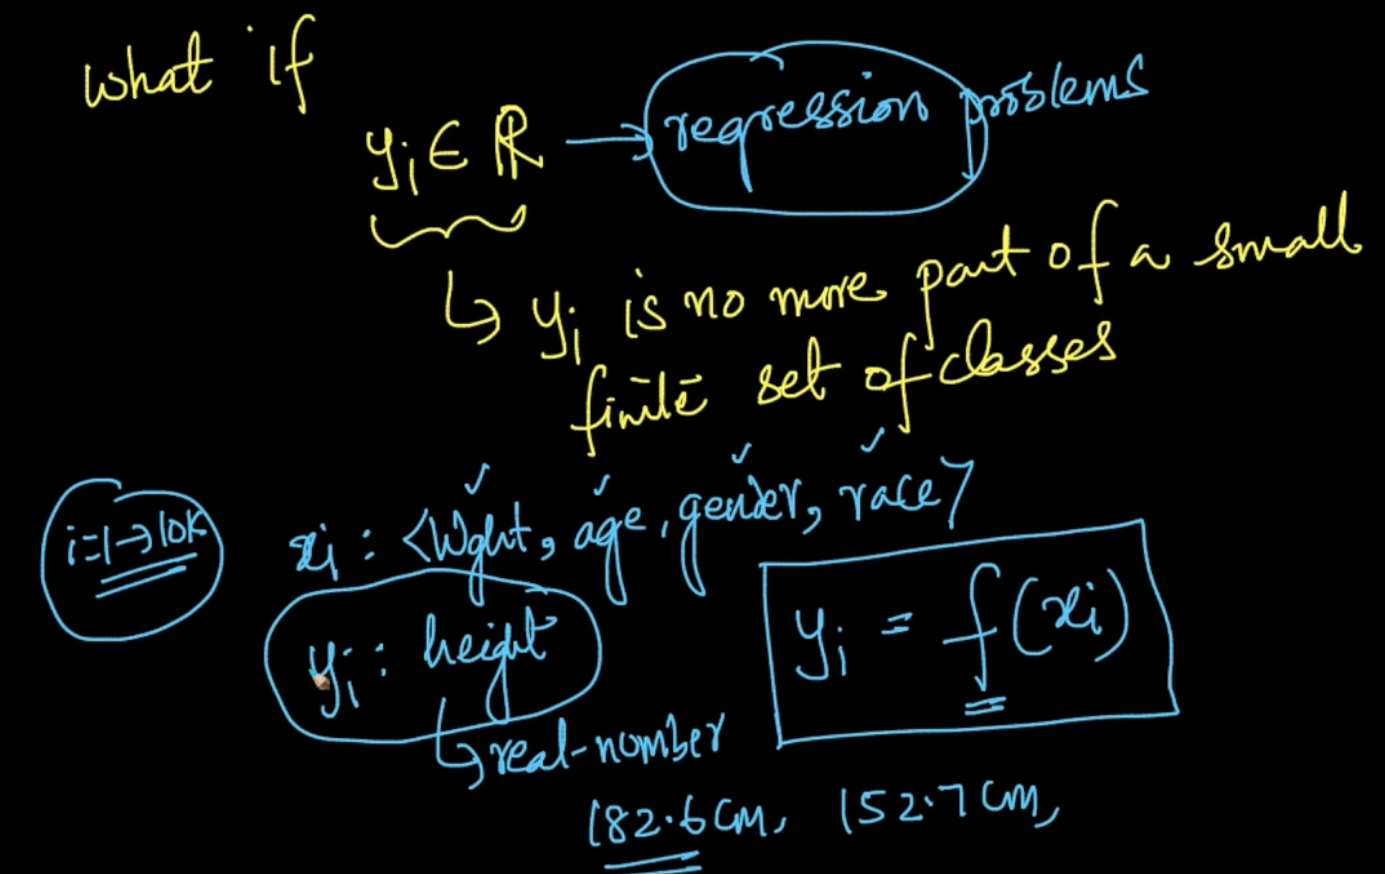 what if
yᵢ ∈ ℝ → regression problems
↳ yᵢ is no more part of a small
finite set of classes
i=1→10K
xᵢ : <Wght, age, gender, race>
yᵢ : height
yᵢ = f(xᵢ)
↳ real-number
182.6 cm, 152.7 cm,